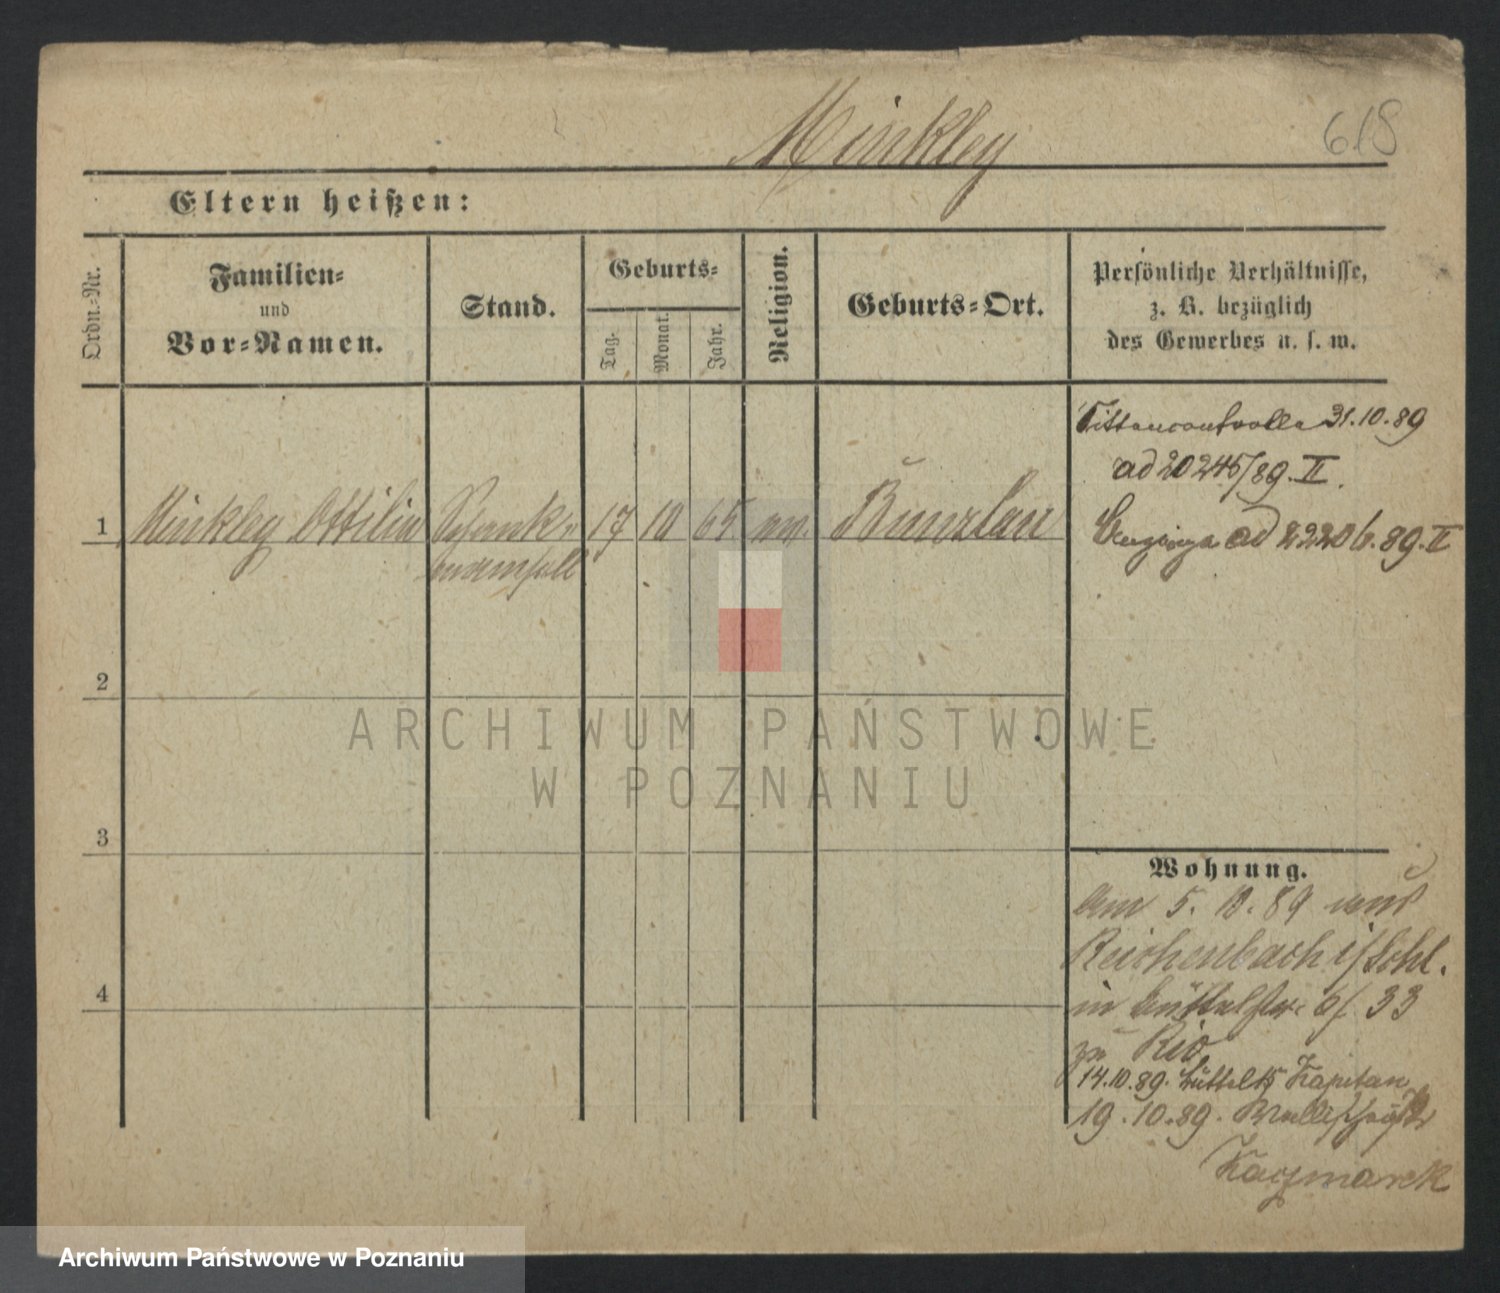 Minkley
618
Eltern heißen:
Ordn.-Nr.
Familien-
und
Vor-Namen.
Stand.
Geburts-
Tag.
Monat.
Jahr.
Religion.
Geburts-Ort.
Persönliche Verhältnisse,
z. B. bezüglich
des Gewerbes u. s. w.
Sittencontrolle 31.10.89
ad 20245/89. II.
1 Minkley Ottilie 17 10 65 Bunzlau
ad 22206.89. II
2
3
4
Wohnung.
Am 5. 10. 89 aus
Reichenbach i/Schl.
in 6/. 33
zu
14.10.89. Büttelstr Kapitan
19.10.89.
Kaczmarek
ARCHIWUM PAŃSTWOWE
W POZNANIU
Archiwum Państwowe w Poznaniu